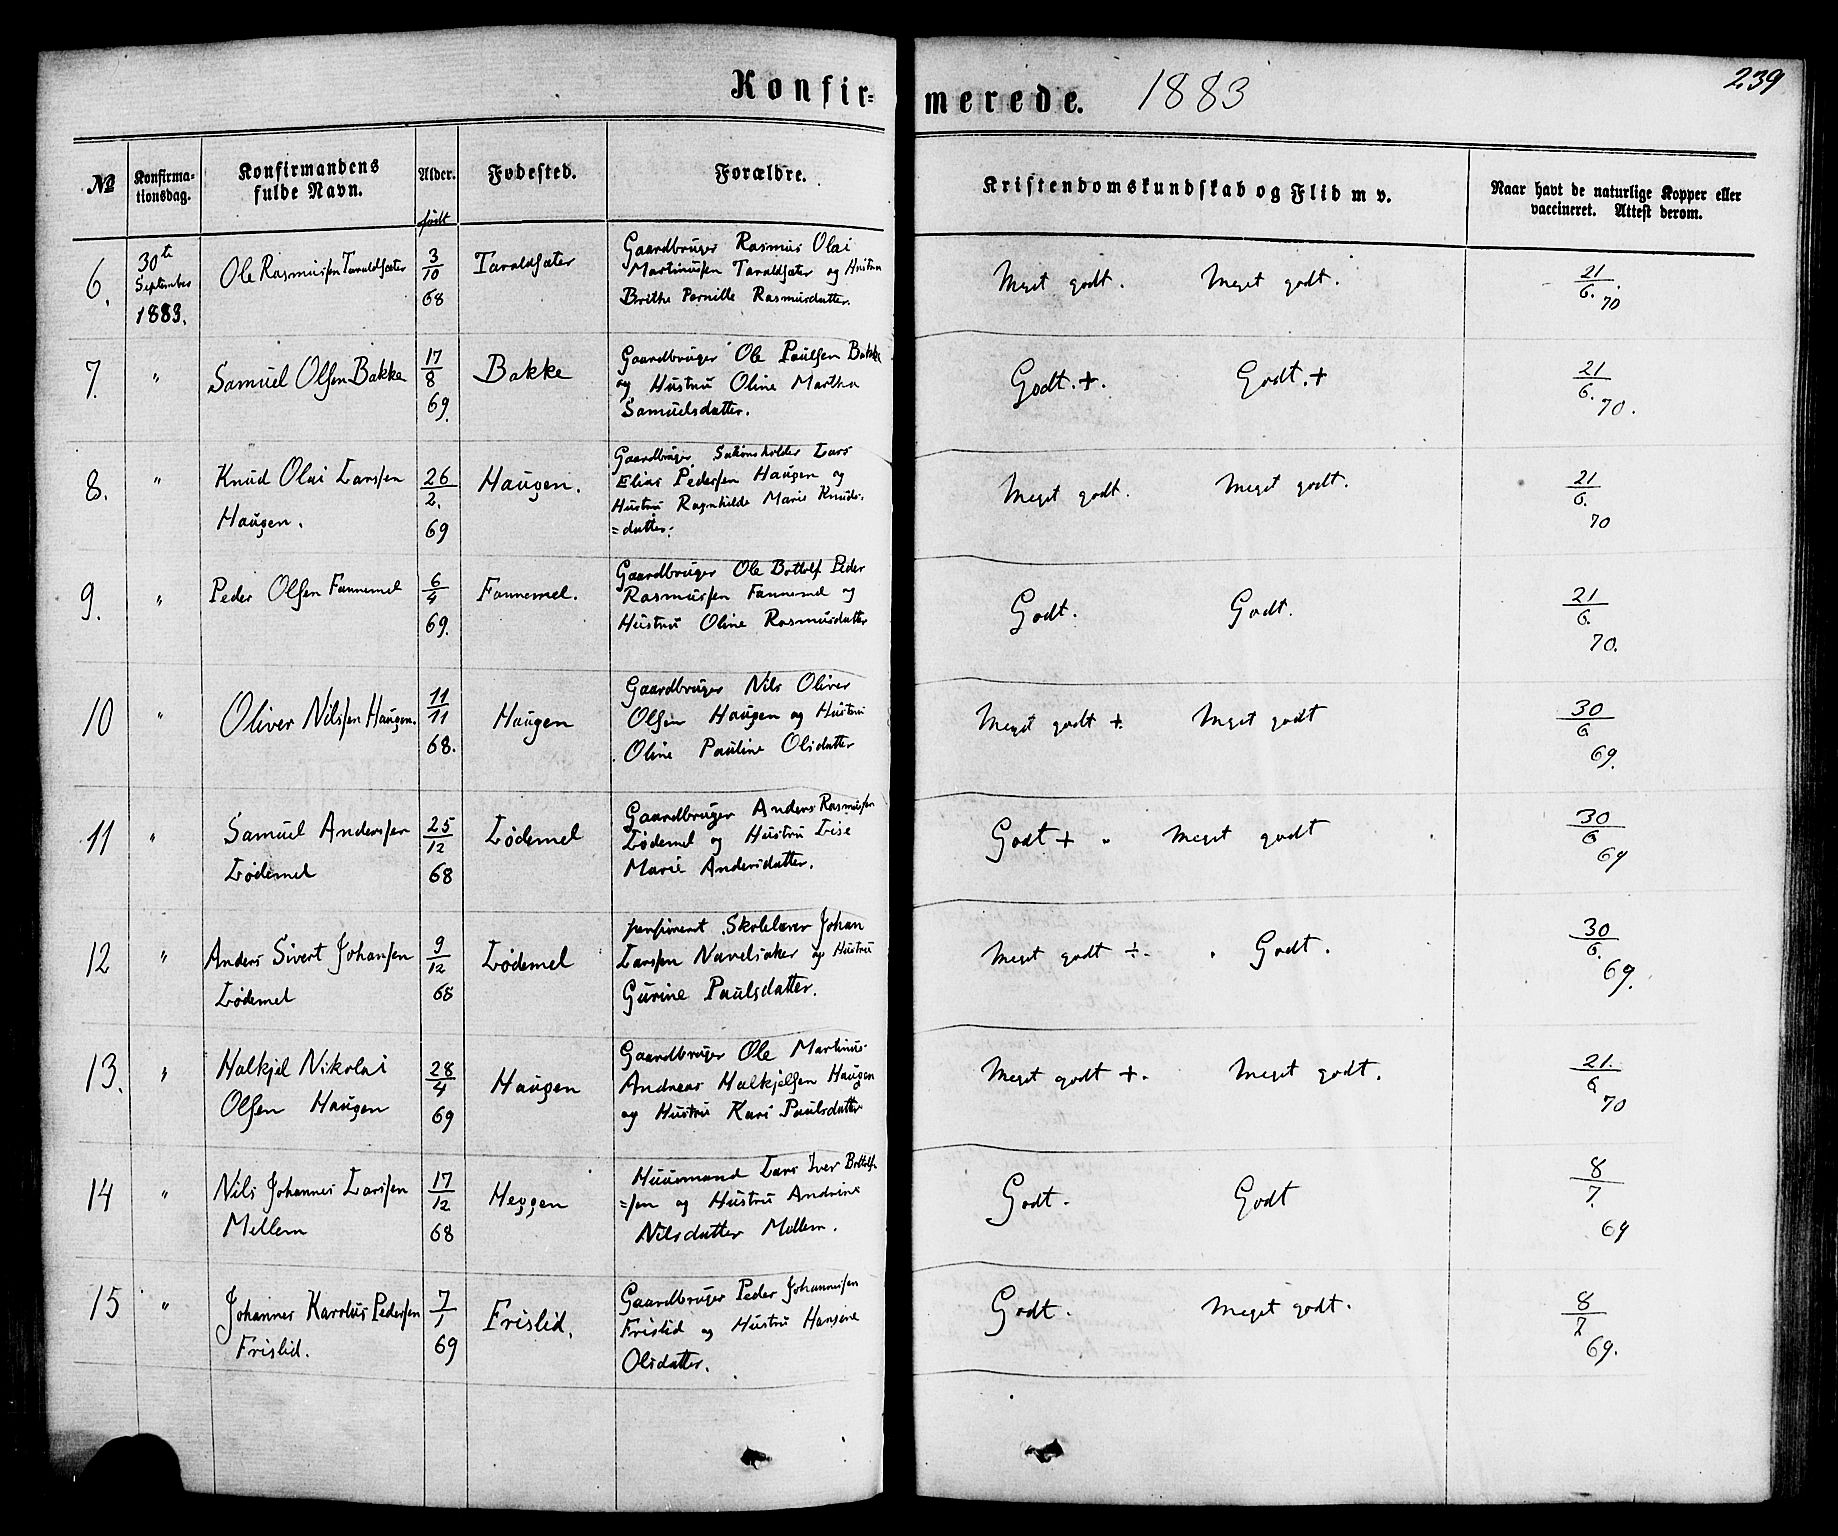 Konfir=
merede. 1883
239
№
Konfirma-
tionsdag.
Konfirmandens
fulde Navn.
Alder.
født
Fødested.
Forældre.
Kristendomskundskab og Flid m v.
Naar havt de naturlige Kopper eller
vaccineret. Attest derom.
6.
30te
September
1883.
Ole Rasmussen Taraldsæter
3/10
68
Taraldsæter
Gaardbruger Rasmus Olai
Martinussen Taraldsæter og Hustru
Brithe Pernille Rasmusdatter.
Meget godt. Meget godt.
21/6. 70
7.
"
Samuel Olsen Bakke
17/8
69.
Bakke
Gaardbruger Ole Paulsen Bakke
og Hustru Oline Martha
Samuelsdatter.
Godt.+. Godt.+
21/6. 70.
8.
"
Knud Olai Larssen
Haugen.
26/2.
69
Haugen.
Gaardbruger Lars
Elias Pedersen Haugen og
Hustru Ragnhilde Marie Knuds-
=datter.
Meget godt. Meget godt.
21/6. 70
9.
"
Peder Olsen Fannemel
6/4
69.
Fannemel.
Gaardbruger Ole Bottolf Peder
Rasmussen Fannemel og
Hustru Oline Rasmusdatter
Godt. Godt.
21/6. 70.
10
"
Oliver Nilssen Haugen.
11/11
68.
Haugen
Gaardbruger Nils Oliver
Olsen Haugen og Hustru
Oline Pauline Olsdatter
Meget godt +. Meget godt
30/6 69.
11
"
Samuel Anderssen
Lødemel
25/12
68
Lødemel
Gaardbruger Anders Rasmussen
Lødemel og Hustru Lise
Marie Andersdatter.
Godt + Meget godt
30/6 69
12
"
Anders Sivert Johansen
Lødemel
9/12
68
Lødemel
Skolelærer Johan
Larssen Navelsaker og Hustru
Gurine Paulsdatter.
Meget godt ÷. Godt.
30/6. 69.
13.
"
Halkjel Nikolai
Olsen Haugen
28/4
69
Haugen
Gaardbruger Ole Martinus
Andreas Halkjelsen Haugen
og Hustru Kari Paulsdatter
Meget godt +. Meget godt.
21./6 70
14
"
Nils Johannes Larssen
Mellem
17/12
68
Heggen
Huusmand Lars Iver Bottolf
=sen og Hustru Andrine
Nilsdatter Mellem.
Godt. Godt
8/7. 69
15
"
Johannes Karolus Pedersen
Frislid.
7/1
69
Frislid.
Gaardbruger Peder Johannessen
Frislid og Hustru Hansine
Olsdatter.
Godt. Meget godt.
8/7 69.